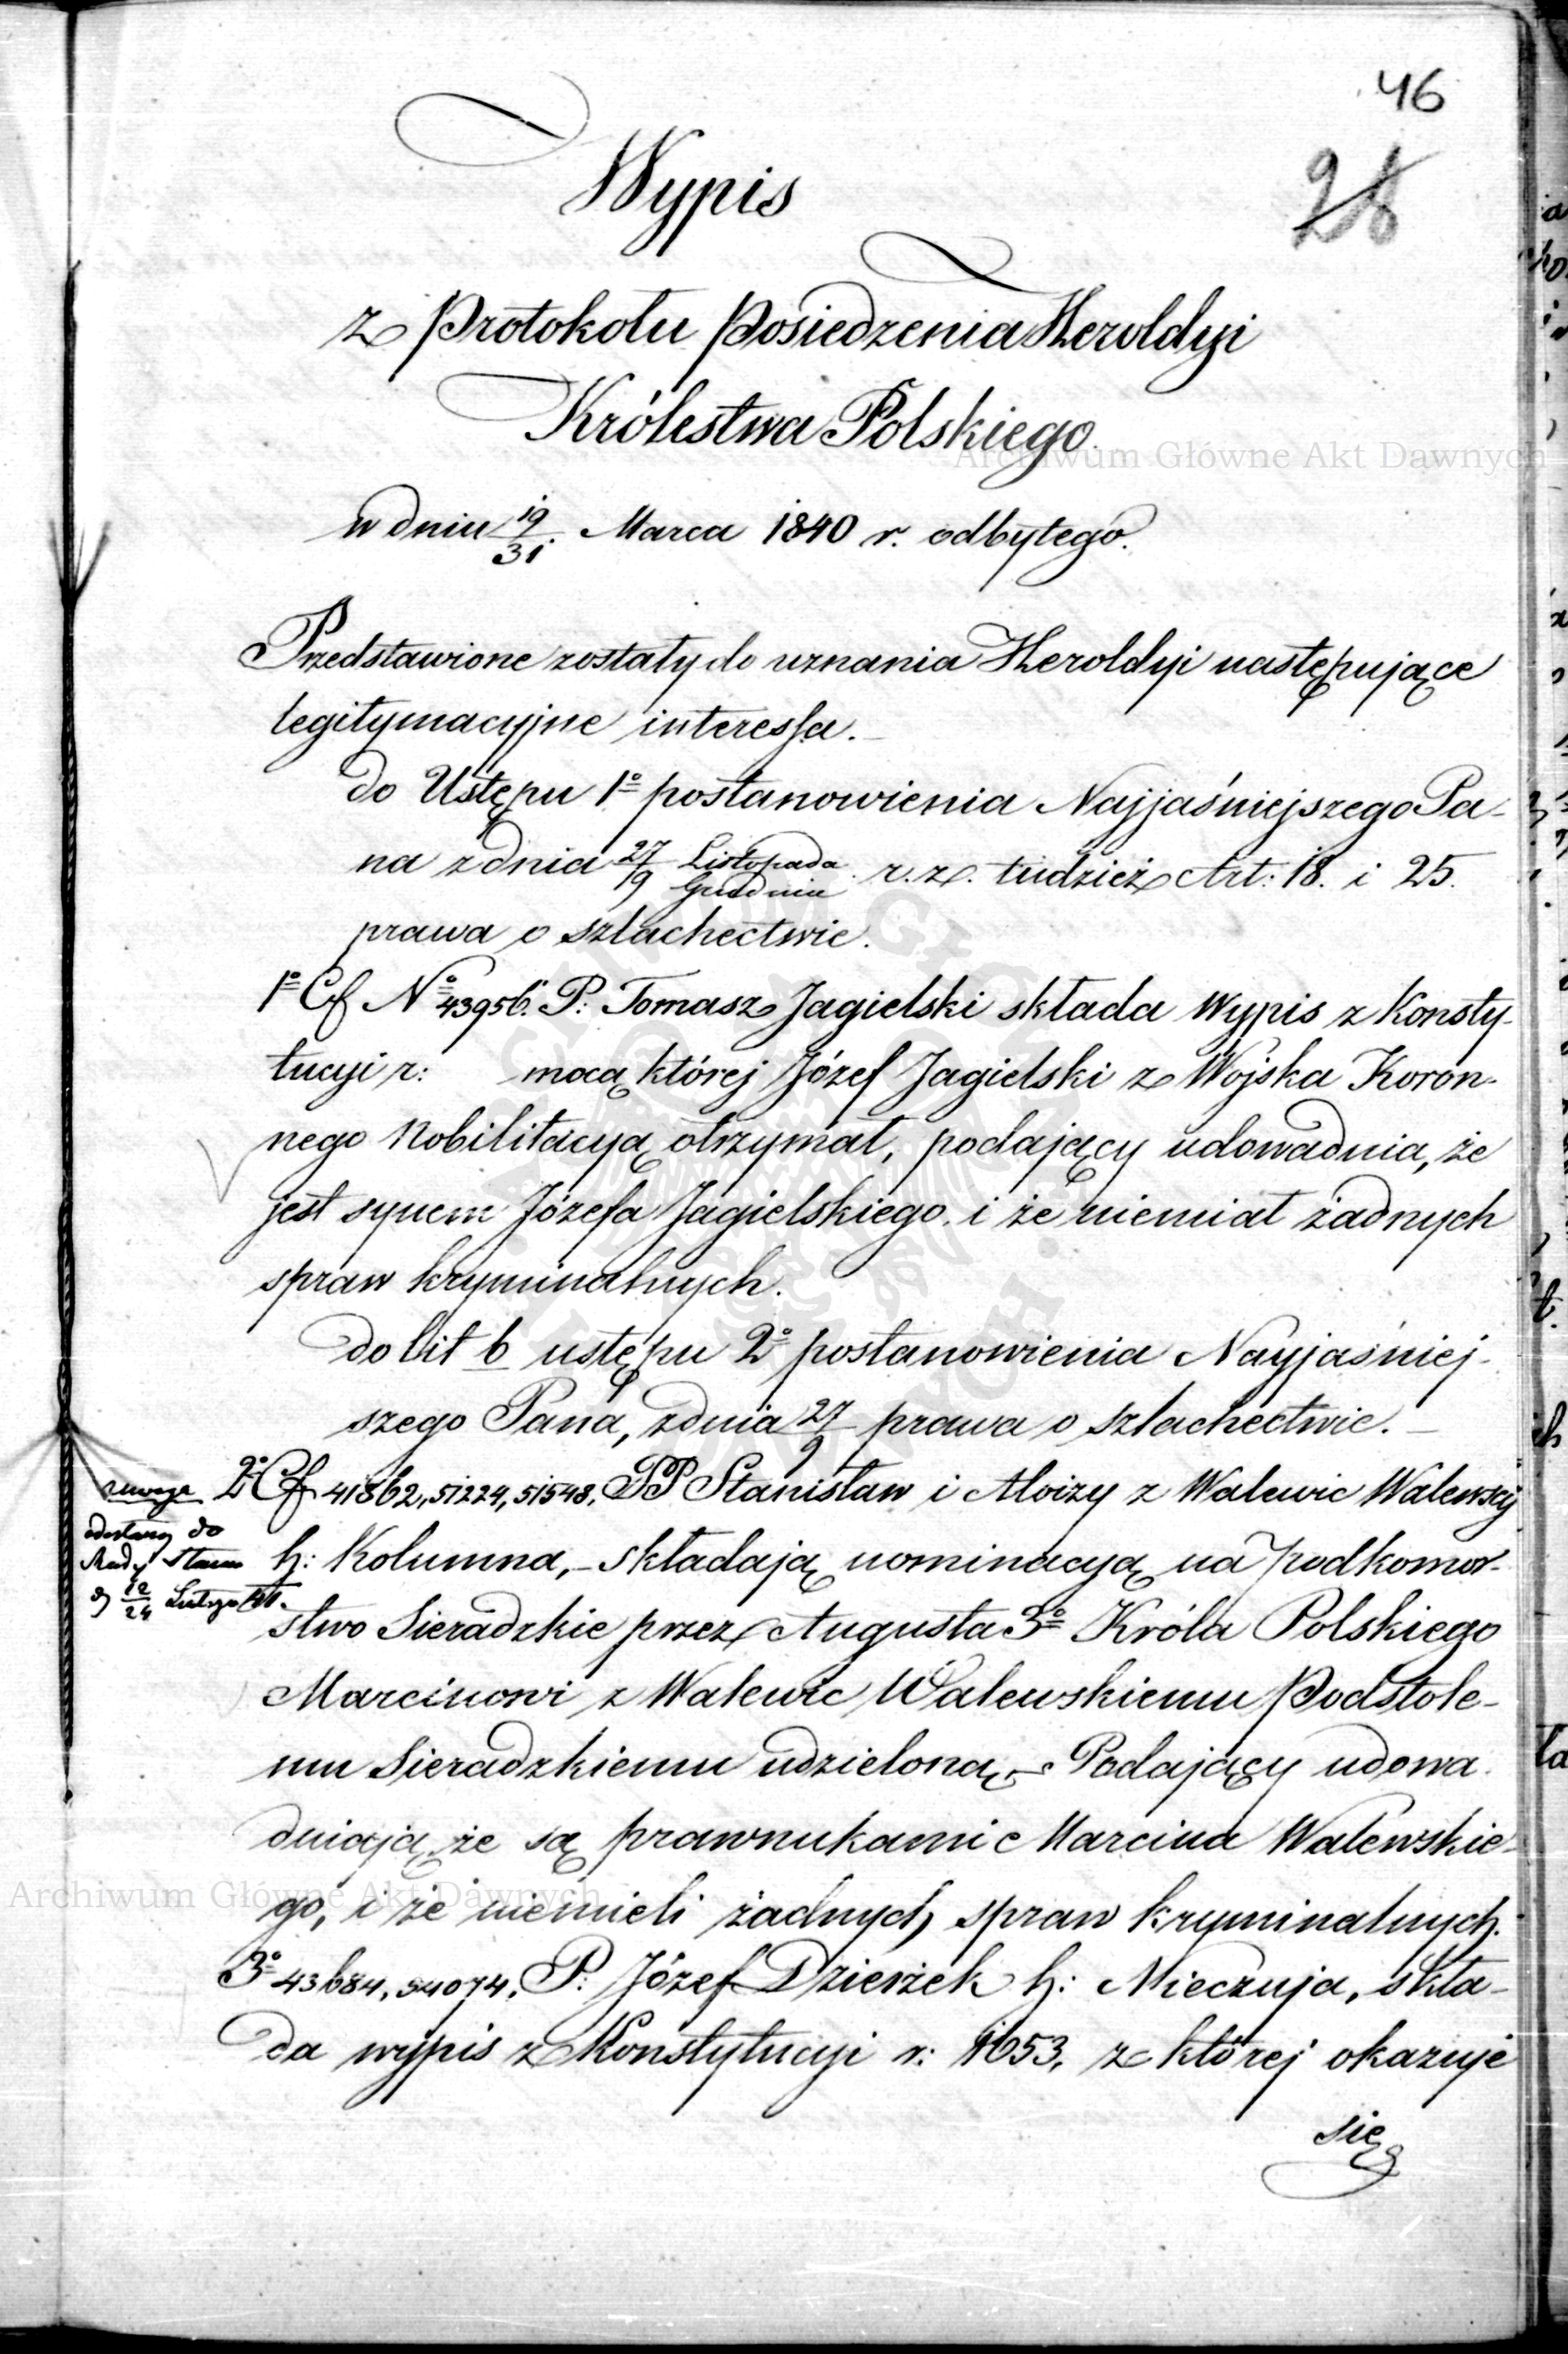 46
28
Wypis
z Protokołu Posiedzenia Heroldyi
Królestwa Polskiego
Archiwum Główne Akt Dawnych
w dniu 19/31 Marca 1840 r. odbytego.
Przedstawione zostały do uznania Heroldyi następujące
legitymacyjne interessa.
do Ustępu 1º postanowienia Najjaśniejszego Pa-
na z dnia 27 Listopada / 9 Grudnia r. z. tudzież Art: 18. i 25.
prawa o szlachectwie.
1º Cf Nº 43956. P: Tomasz Jagielski składa Wypis z Konsty-
tucyi r: mocą której Józef Jagielski z Wojska Koron-
nego Nobilitacyą otrzymał, podający udowadnia, że
jest synem Józefa Jagielskiego i że niemiał żadnych
spraw kryminalnych.
do lit b ustępu 2º postanowienia Nayjaśniej-
szego Pana, z dnia 27/9 prawa o szlachectwie.
2º Cf 41862, 51224, 51548, PP Stanisław i Aloizy z Walewic Walewscy
uwaga
odesłany do
Rady Stanu
d 12/24 Lutego 
h: Kolumna, - składają nominacyą na podkomor-
stwo Sieradzkie przez Augusta 3º Króla Polskiego
Marcinowi z Walewic Walewskiemu Podstole-
mu Sieradzkiemu udzieloną, - Podający udowa-
dniają że są prawnukami Marcina Walewskie-
Archiwum Główne Akt Dawnych
go, i że niemieli żadnych spraw kryminalnych.
3º 43684, 54074, P: Józef Dzierżek h: Nieczuja, skła-
da wypis z Konstytucyi r: 1653, z której okazuje
się